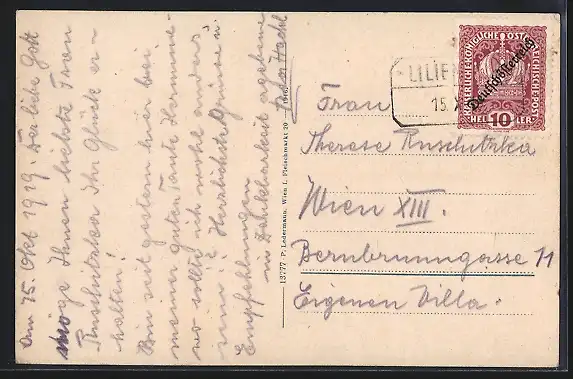 Am 15. Okt 1919. Der liebe Gott
möge Ihnen liebste Frau
Ruschitzka Ihr Glück er-
halten!
Bin seit gestern hier bei
meiner guten Tante Hermine
wo sollte ich wohl anders
sein! Herzlichste Grüsse u.
Empfehlungen
in Dankbarkeit ergebene
13777 P. Ledermann, Wien I., Fleischmarkt 20
KAISERLICHE KÖNIGLICHE ÖSTERREICHISCHE POST
Deutschösterreich
HELLER 10
LILIEN
15. X
Frau
Therese Ruschitzka
Wien XIII.
Bernbrunngasse 11
Eigenen Villa.